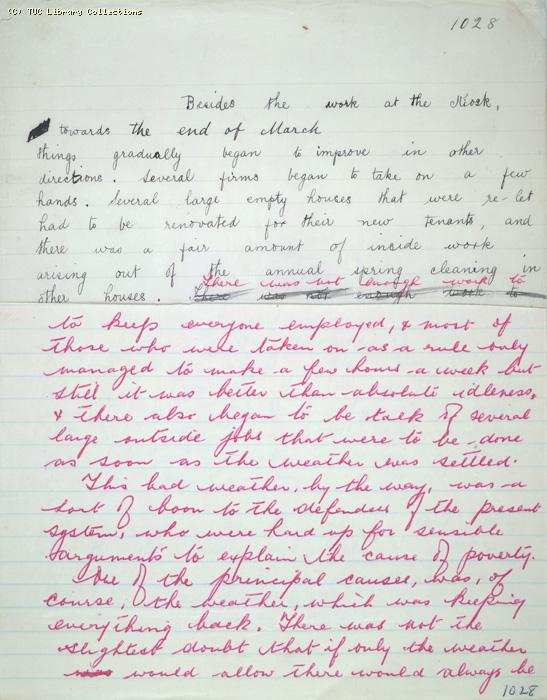 (C) TUC Library Collections
1028
Besides the work at the Kiosk,
towards the end of March
things gradually began to improve in other
directions. Several firms began to take on a few
hands. Several large empty houses that were re-let
had to be renovated for their new tenants, and
there was a fair amount of inside work
arising out of the annual spring cleaning in
other houses. There was not enough work to
There was not enough work to
to keep everyone employed, & most of
those who were taken on as a rule only
managed to make a few hours a week but
still it was better than absolute idleness,
& there also began to be talk of several
large outside jobs that were to be done
as soon as the weather was settled.
This bad weather, by the way, was a
sort of boon to the defenders of the present
system, who were hard up for sensible
arguments to explain the cause of poverty.
One of the principal causes, was, of
course, the weather, which was keeping
everything back. There was not the
slightest doubt that if only the weather
was would allow there would always be
1028